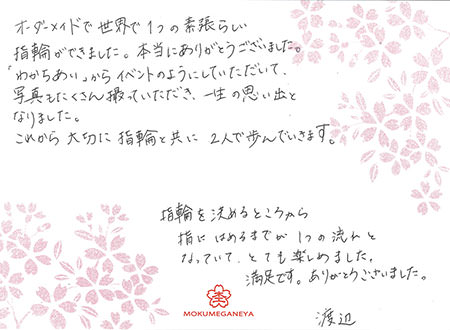 オーダーメイドで世界で1つの素張らしい
指輪ができました。本当にありがとうございました。
「わかちあい」からイベントのようにしていただいて、
写真もたくさん撮っていただき、一生の思い出と
なりました。
これから大切に指輪と共に2人で歩んでいきます。
指輪を決めるところから
指にはめるまでが1つの流れと
なっていて、とても楽しめました。
満足です。ありがとうございました。
MOKUMEGANEYA
渡辺